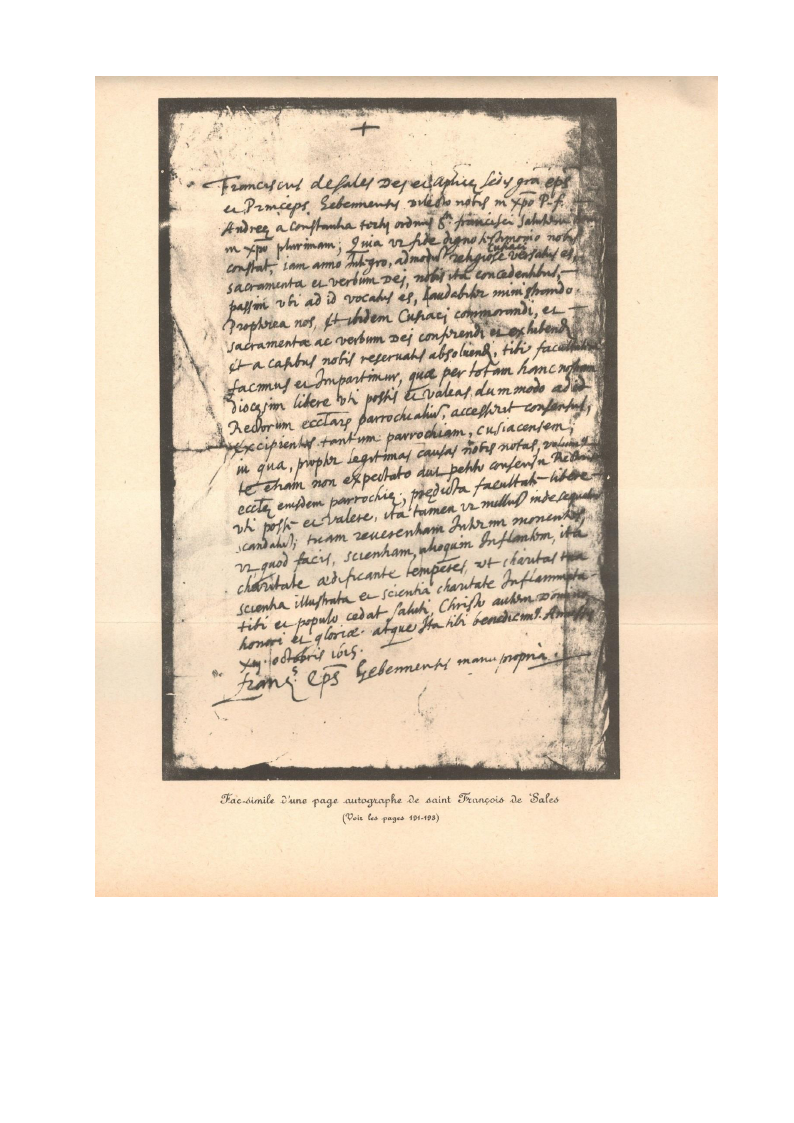 +
Franciscus de Sales Dei et Aplicę Sedis grā eps
et Princeps Gebennensis dilecto nobis in Xpo P. f.
Andreę a Constantia tertij ordinis Sti. francisci salutem
in Xpo plurimam; Quia ut fide digno testimonio nobis
Cusiaci
constat, iam anno Integro, admodum religiose versatus es,
sacramenta et verbum Dei, nobis ita concedentibus,
passim ubi ad id vocatus es, laudabiliter ministrando.
Propterea nos, et ibidem Cusiaci commorandi, et
sacramenta ac verbum Dei conferendi et exhibendi
Et a casibus nobis reservatis absolvendi, tibi facultatem
facimus et Impartimur, quæ per totam hanc nostram
diocęsim libere uti possis et valeas dummodo ad id
Rectorum ecclīarū parrochialiū, accesserit consensus,
Excipientes tantum parrochiam, Cusiacensem;
in qua, propter legitimas causas nobis notas, volumus
te etiam non expectato aut petito consensu Rectoris
ecclīę eiusdem parrochię, prędicta facultate libere
uti posse et valere, ita tamen ut nullum inde sequatur
scandalū; tuam reverentiam Interim monentes,
ut quod facis, scientiam, alioquin Inflantem, ita
charitate ædificante temperes, ut charitas tua
scientia illustrata et scientia charitate Inflammata
tibi et populo cedat saluti, Christo autem Domino
honori et gloriæ. atque Ita tibi benedicimus. Annessij
xiij. octobris 1615.
franςs eps Gebennensis manu propria.
Fac-simile d'une page autographe de saint François de Sales
(Voir les pages 191-193)